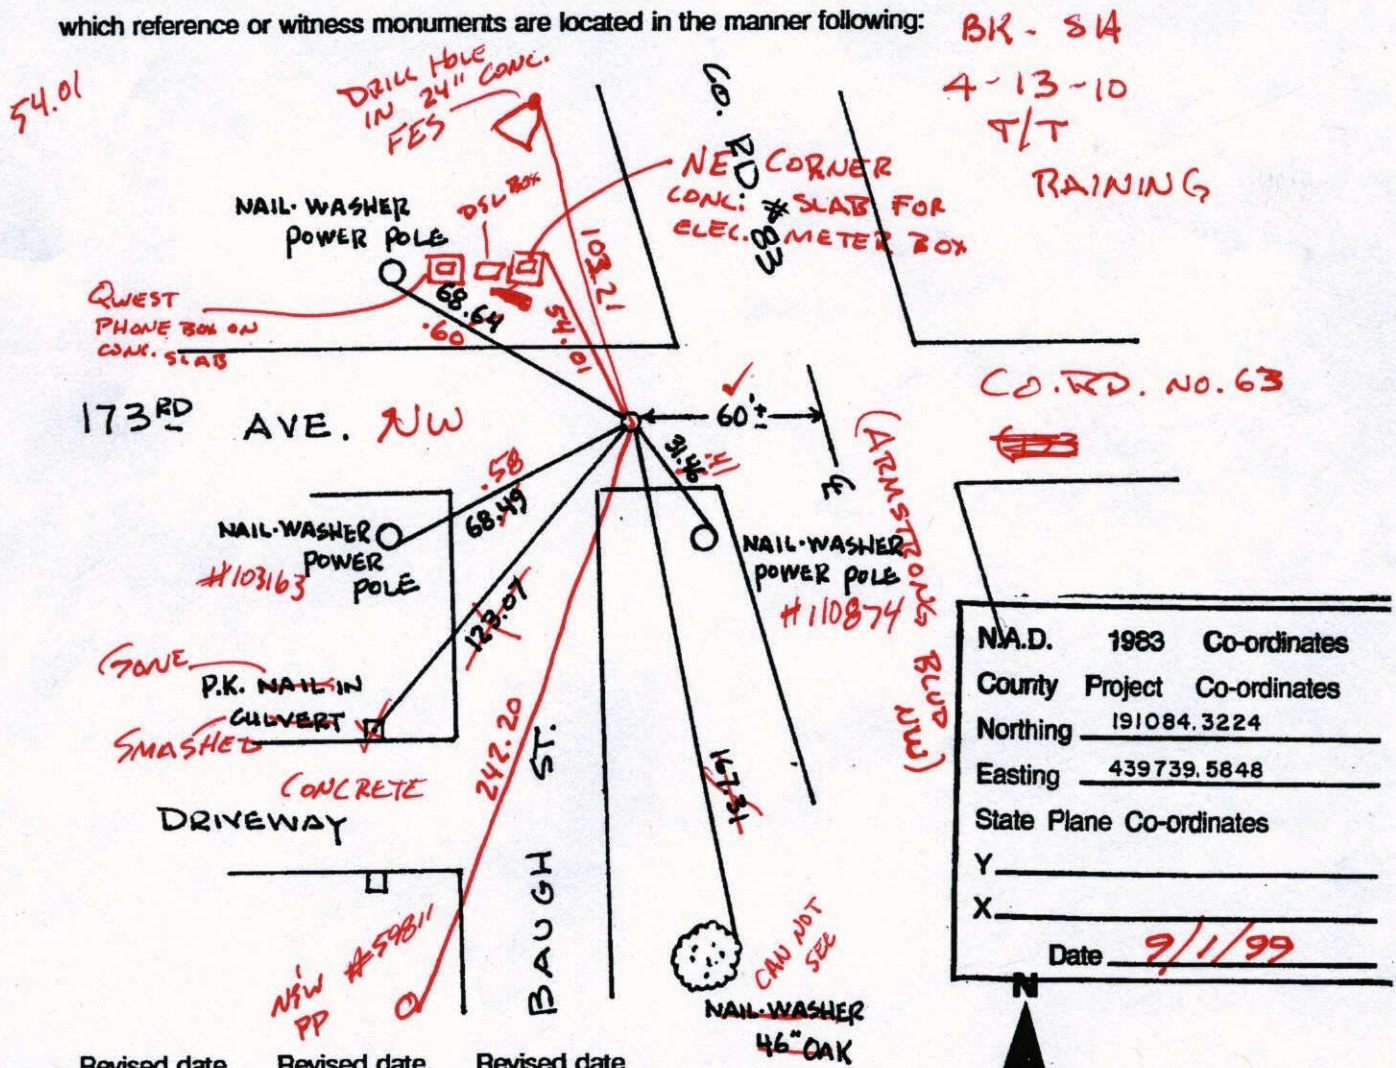 which reference or witness monuments are located in the manner following:
BK - SH
4-13-10
T/T
RAINING
54.01
DRILL HOLE
IN 24" CONC.
FES
CO. RD #83
NE CORNER
CONC. SLAB FOR
ELEC. METER BOX
NAIL·WASHER
POWER POLE
DSL BOX
103.21
QWEST
PHONE BOX ON
CONC. SLAB
68.64
.60
54.01
173RD AVE. NW
60'±
CO. RD. NO. 63
(ARMSTRONG BLVD NW)
31.46
.41
.58
68.49
NAIL·WASHER
POWER
POLE
#103163
NAIL·WASHER
POWER POLE
#110874
123.07
GONE
P.K. NAIL IN
CULVERT
SMASHED
CONCRETE
DRIVEWAY
242.20
BAUGH ST.
167.31
N.A.D. 1983 Co-ordinates
County Project Co-ordinates
Northing 191084.3224
Easting 439739.5848
State Plane Co-ordinates
Y
X
Date 9/1/99
N
NEW #59811
PP
CAN NOT
SEE
NAIL·WASHER
46" OAK
Revised date Revised date Revised date